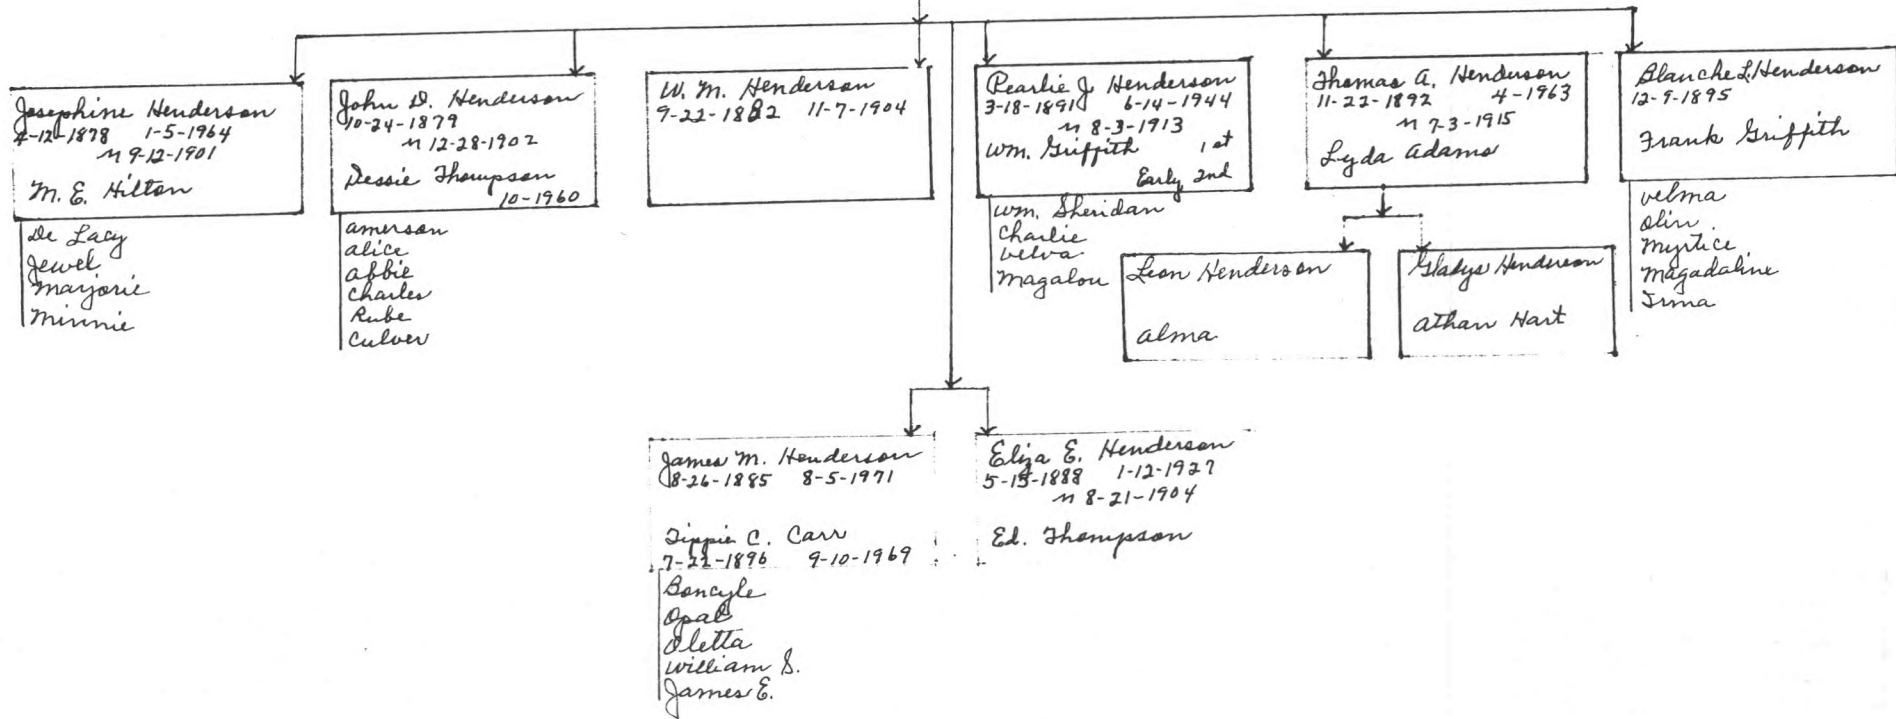 Josephine Henderson
4-12-1878 1-5-1964
m 9-12-1901
M. E. Hilton
De Lacy
Jewel
Marjorie
Minnie
John D. Henderson
10-24-1879
m 12-28-1902
Dessie Thompson
10-1960
amerson
alice
abbie
Charles
Rube
Culver
W. M. Henderson
9-22-1882 11-7-1904
Pearlie J. Henderson
3-18-1891 6-14-1944
m 8-3-1913
Wm. Griffith 1st
Early 2nd
Wm. Sheridan
Charlie
Velva
Magalou
Thomas A. Henderson
11-22-1892 4-1963
m 7-3-1915
Lyda Adams
Leon Henderson
alma
Gladys Henderson
athan Hart
Blanche L. Henderson
12-9-1895
Frank Griffith
Velma
Olin
Myrtice
Magadaline
Irma
James M. Henderson
8-26-1885 8-5-1971
C. Carr
7-22-1896 9-10-1969
Boncyle
Opal
Oletta
William S.
James E.
Eliza E. Henderson
5-15-1888 1-12-1927
m 8-21-1904
Ed. Thompson